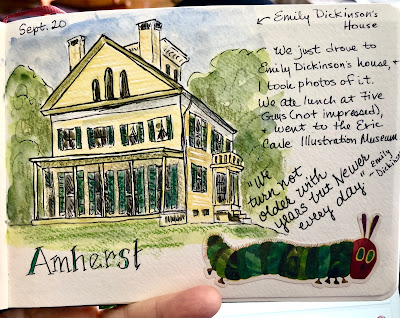 Sept. 20
← Emily Dickinson's
House
We just drove to
Emily Dickinson's house, +
I took photos of it.
We ate lunch at Five
Guys (not impressed),
+ went to the Eric
Carle Illustration Museum
"We
turn not
older with
years but newer
every day"
- Emily
Dickinson
Amherst